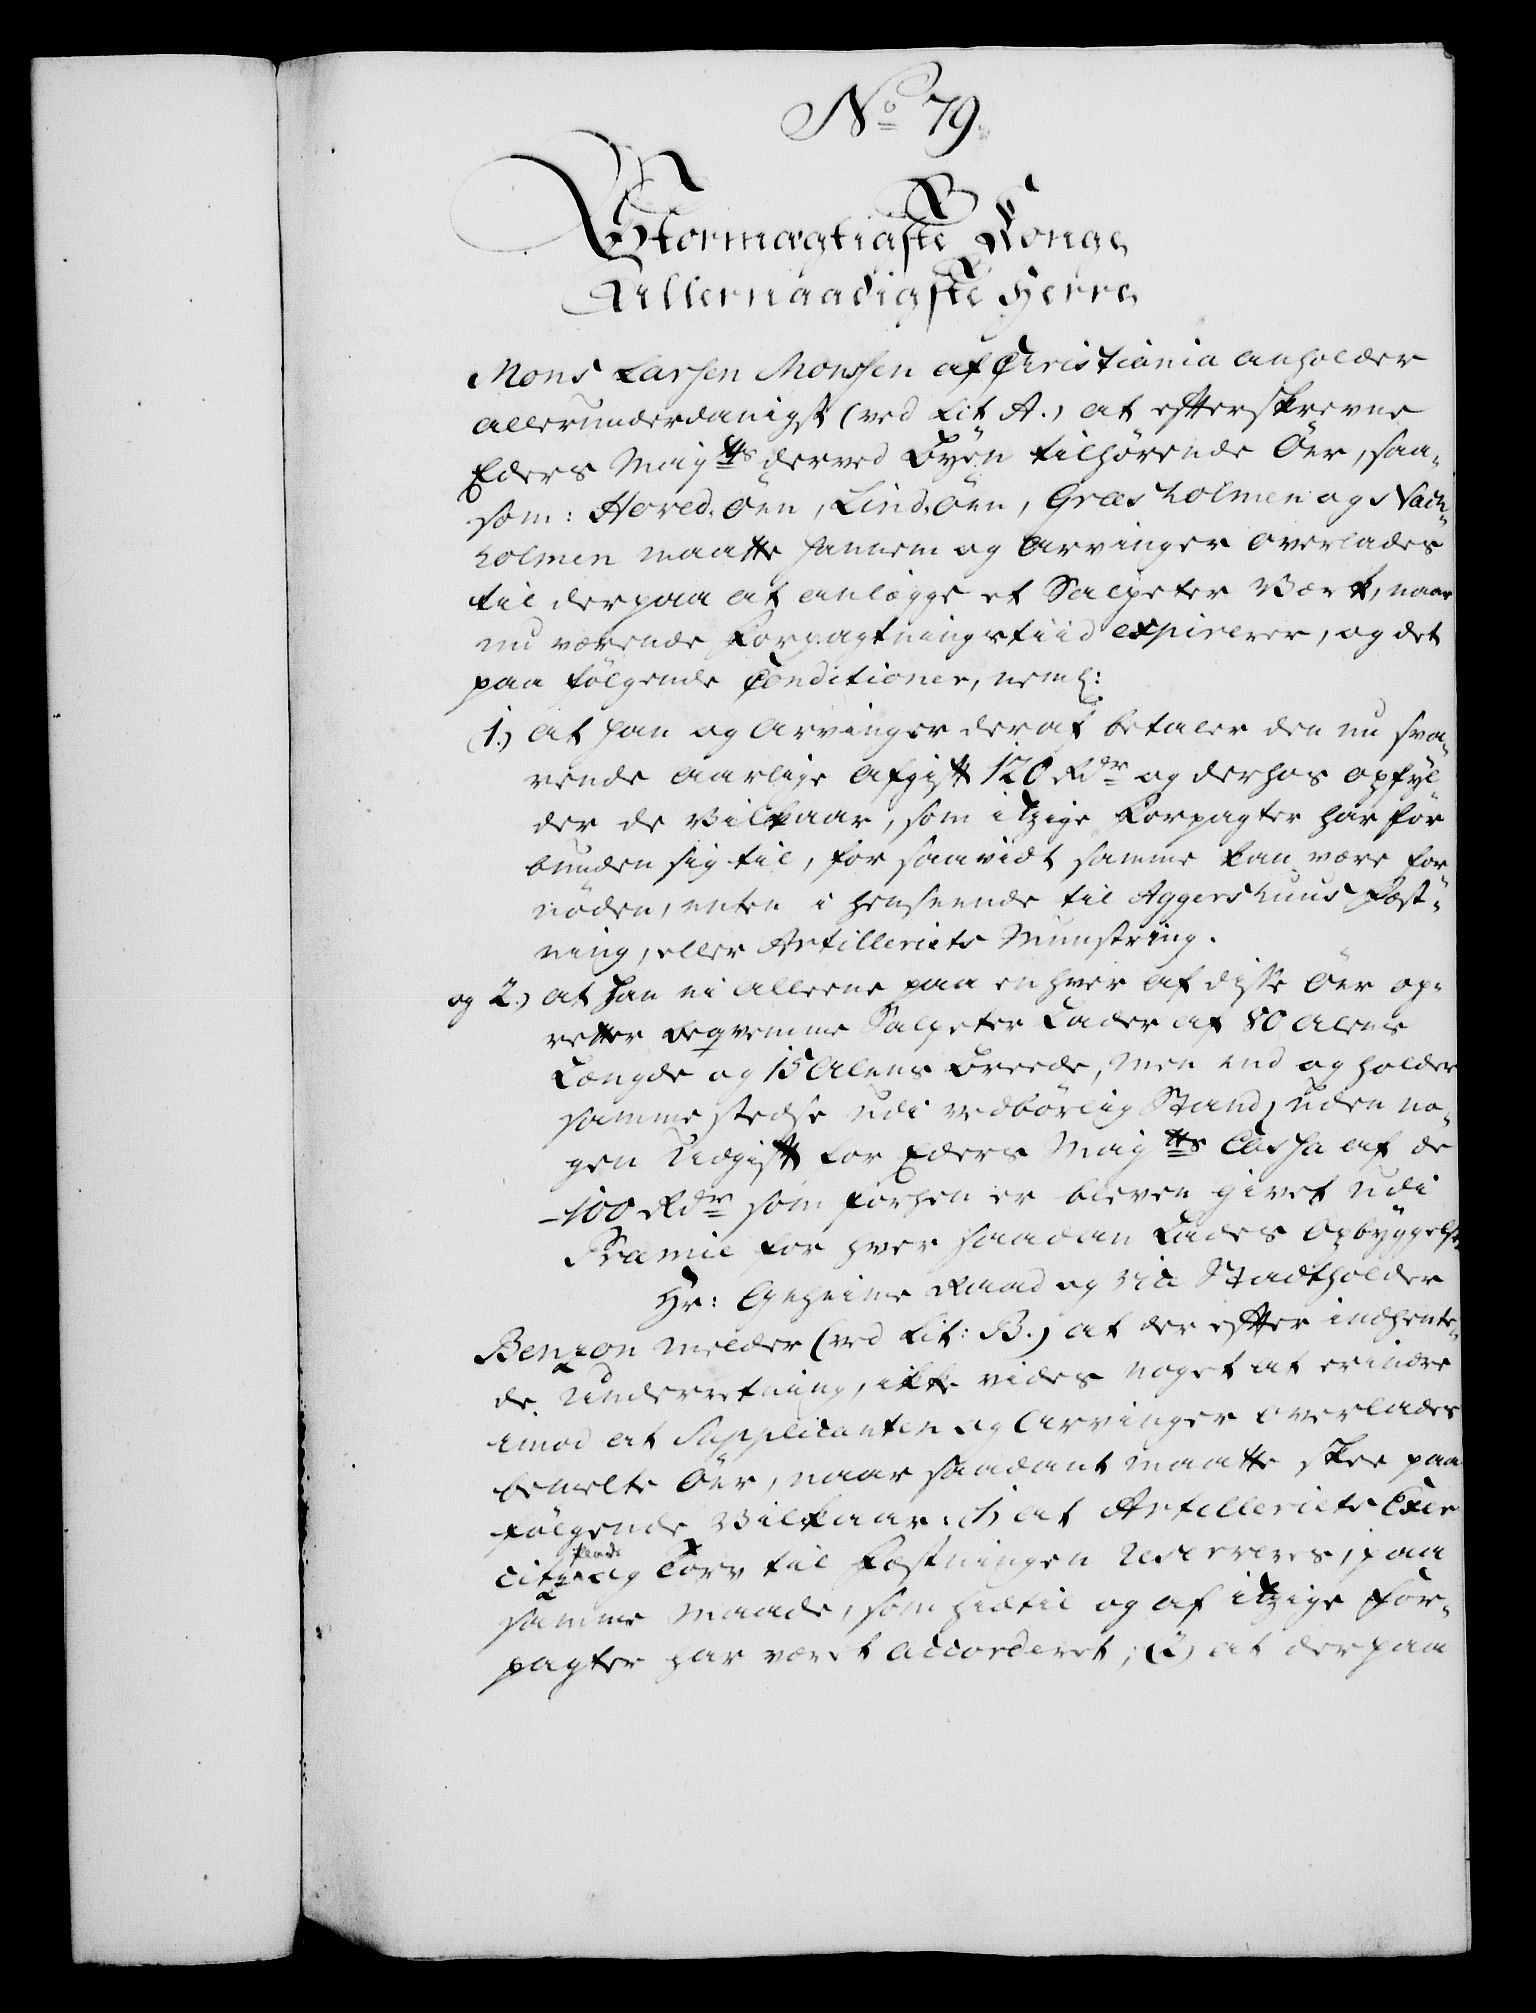 No 79.
Stormægtigste Konge,
Allernaadigste Herre,
Mons Larsen Monssen af Christiania anholder
allerunderdanigst (ved Lit A.) at efterskrevne
Eders Maytts derved Byen tilhørende Öer, saa-
som: Hoved-Öen, Lind-Öen, Græsholmen og Nack-
holmen maatte hannem og Arvinger overlades
til derpaa at anlægge et Salpeter Værk, naar
nu værende Forpagtningstiid expirerer, og det
paa følgende Conditioner, neml:
(1.) at han og Arvinger deraf betaler den nu sva-
rende aarlige Afgift 120 Rdr og derhos opfyl-
der de Vilkaar, som itzige Forpagter har for
bunden sig til, for saavidt samme kan være for-
nöden, enten i henseende til Aggershuus Fæst-
ning, eller Artilleriets Munstring.
og 2.) at han ei alleene paa enhver af disse Öer op-
retter beqvemme Salpeter Lader af 80 Alens
Længde og 15 Alens Breede, men end og holder
samme stedse udi vedbörlig Stand, uden no-
gen Udgift for Eders Maytts Cassa af de
100 Rdr som forhen er bleven givet udi
Præmie for hver saadan Lades Opbyggelse,
Hr: Geheime Raad og Vice Stadtholder
Benzon melder (ved Lit: B.) at der efter indhente-
de Underretning, ikke vides noget at erindre
imod at Supplicanten og Arvinger overlades
bemelte Öer, naar saadant maatte skee paa
følgende Vilkaar: (1) at Artilleriets Exer
citz plads og Törv til Fæstningen reserveres, paa
samme Maade, som hidtil og af itzige For-
pagter har været accorderet; (2) at derpaa